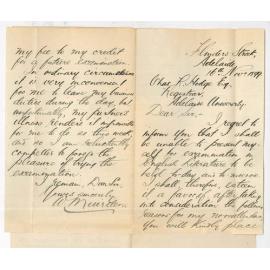 Flinders Street,
Adelaide,
16th Nov. 1891.
Chas. R. Hodge Esq.
Registrar,
Adelaide University.
Dear Sir,-
I regret to
inform you that I shall
be unable to present my-
self for examination in
English Literature to be
held today and to-morrow
I shall, therefore, esteem
it a favor if after taking
into consideration the following
reason for my non-attendance
you will kindly place
my fee to my credit
for a future examination.
In ordinary circumstances
it is very inconvenient
for me to leave my business
duties during the day, but
unfortunately, my partner's
illness renders it impossible
for me to do so this week,
and so I am reluctantly
compelled to forego the
pleasure of trying the
examination.
I remain, Dear Sir,
Yours sincerely,